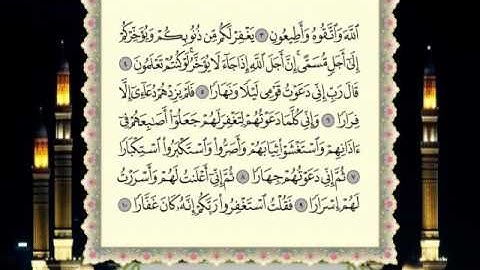 ٱللَّهَ وَٱتَّقُوهُ وَأَطِيعُونِ ٣ يَغْفِرْ لَكُم مِّن ذُنُوبِكُمْ وَيُؤَخِّرْكُمْ
إِلَىٰٓ أَجَلٍ مُّسَمًّى ۚ إِنَّ أَجَلَ ٱللَّهِ إِذَا جَآءَ لَا يُؤَخَّرُ ۖ لَوْ كُنتُمْ تَعْلَمُونَ ٤
قَالَ رَبِّ إِنِّى دَعَوْتُ قَوْمِى لَيْلًا وَنَهَارًا ٥ فَلَمْ يَزِدْهُمْ دُعَآءِىٓ إِلَّا
فِرَارًا ٦ وَإِنِّى كُلَّمَا دَعَوْتُهُمْ لِتَغْفِرَ لَهُمْ جَعَلُوٓا۟ أَصَٰبِعَهُمْ فِىٓ
ءَاذَانِهِمْ وَٱسْتَغْشَوْا۟ ثِيَابَهُمْ وَأَصَرُّوا۟ وَٱسْتَكْبَرُوا۟ ٱسْتِكْبَارًا
٧ ثُمَّ إِنِّى دَعَوْتُهُمْ جِهَارًا ٨ ثُمَّ إِنِّىٓ أَعْلَنتُ لَهُمْ وَأَسْرَرْتُ
لَهُمْ إِسْرَارًا ٩ فَقُلْتُ ٱسْتَغْفِرُوا۟ رَبَّكُمْ إِنَّهُۥ كَانَ غَفَّارًا ١٠